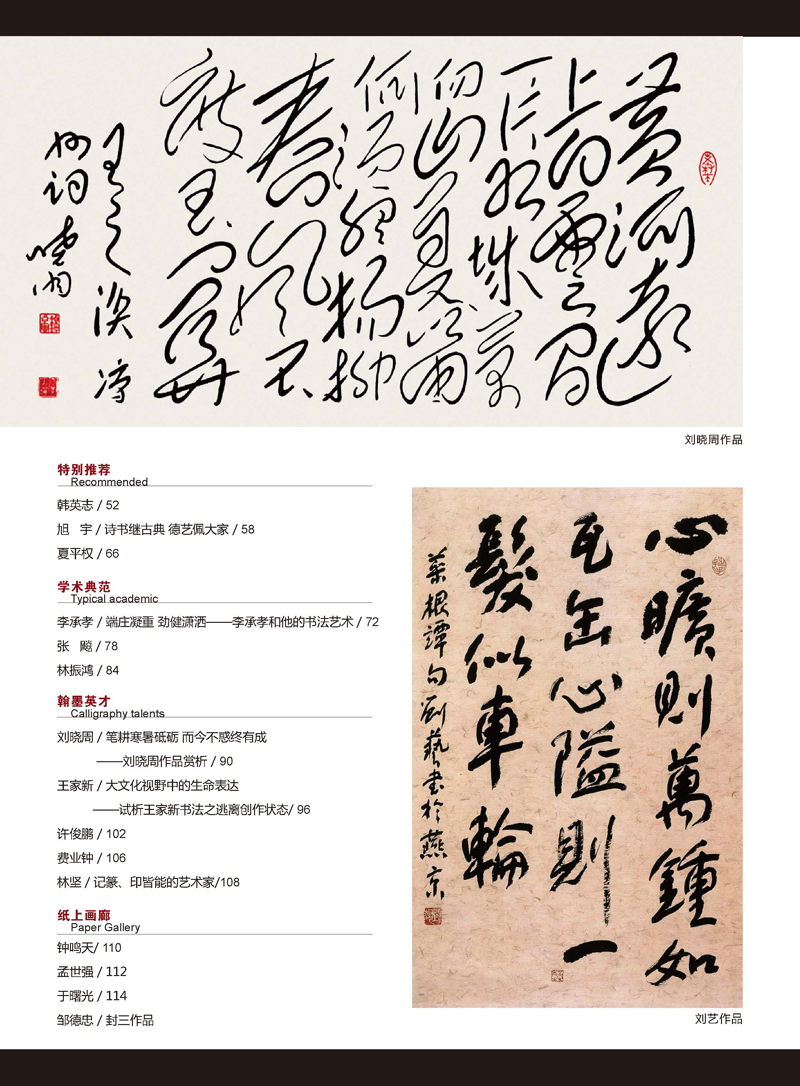 黄河遠
上白雲間
一片孤城萬
仞山羌笛
何須怨楊柳
春風不
度玉門關
王之渙 涼
州詞 曉周
刘晓周作品
特别推荐
Recommended
韩英志 / 52
旭 宇 / 诗书继古典 德艺佩大家 / 58
夏平权 / 66
学术典范
Typical academic
李承孝 / 端庄凝重 劲健潇洒——李承孝和他的书法艺术 / 72
张 飚 / 78
林振鸿 / 84
翰墨英才
Calligraphy talents
刘晓周 / 笔耕寒暑砥砺 而今不感终有成
——刘晓周作品赏析 / 90
王家新 / 大文化视野中的生命表达
——试析王家新书法之逃离创作状态/ 96
许俊鹏 / 102
费业钟 / 106
林坚 / 记篆、印皆能的艺术家/108
纸上画廊
Paper Gallery
钟鸣天/ 110
孟世强 / 112
于曙光 / 114
邹德忠 / 封三作品
心曠則萬鍾如
瓦缶心隘則一
髮似車輪
菜根譚句劉藝書於燕京
刘艺作品